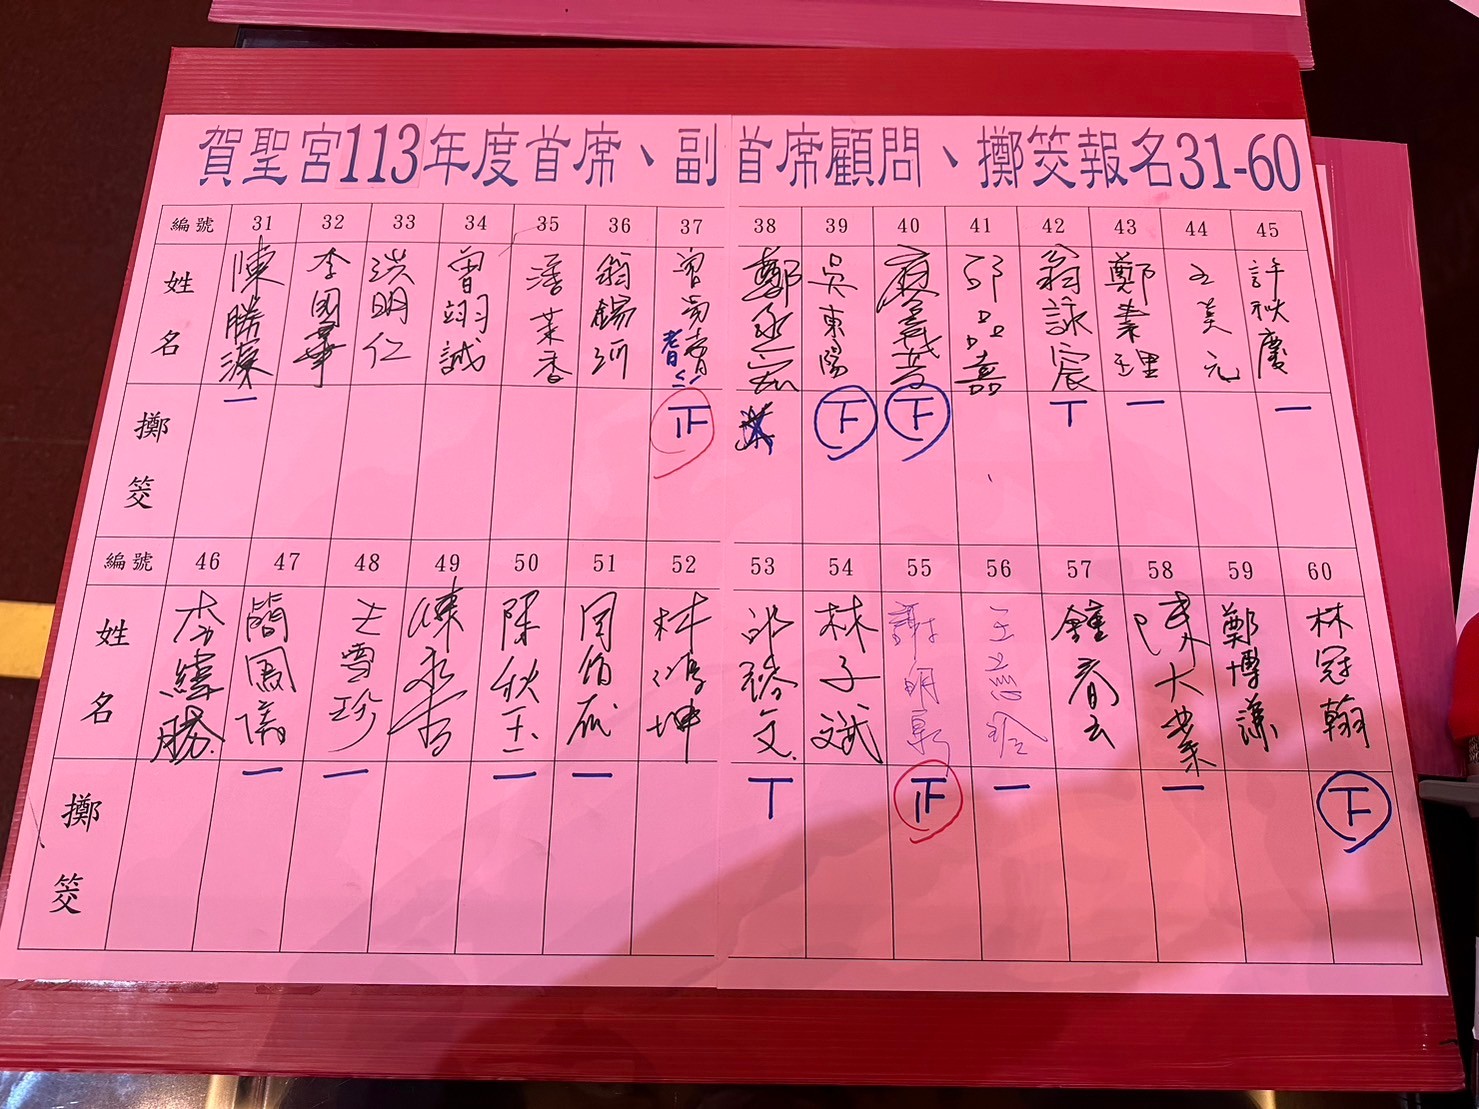 賀聖宮113年度首席、副首席顧問、擲筊報名31-60
編號 31 32 33 34 35 36 37 38 39 40 41 42 43 44 45
姓名 陳勝濂 李國華 洪明仁 曾翊誠 潘茉香 翁錫圳 曾 吳東陽 廖 邱品嘉 翁詠宸 鄭素理 王美元 許秋慶
擲筊 一 正 下 下 丅 一 一
編號 46 47 48 49 50 51 52 53 54 55 56 57 58 59 60
姓名 李 勝 簡鳳儀 王雪珍 陳 陳秋玉 周伯 林鴻坤 邱裕文 林子斌 謝明 王 玲 鐘春 陳大業 鄭博謙 林冠翰
擲筊 一 一 一 一 丅 正 一 一 下